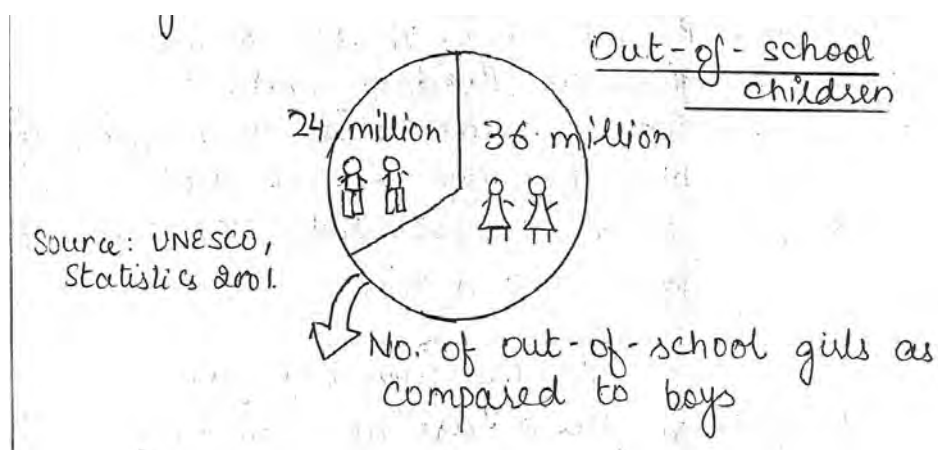 Out-of-school
children
24 million 36 million
Source: UNESCO,
Statistics 2001.
No. of out-of-school girls as
compared to boys